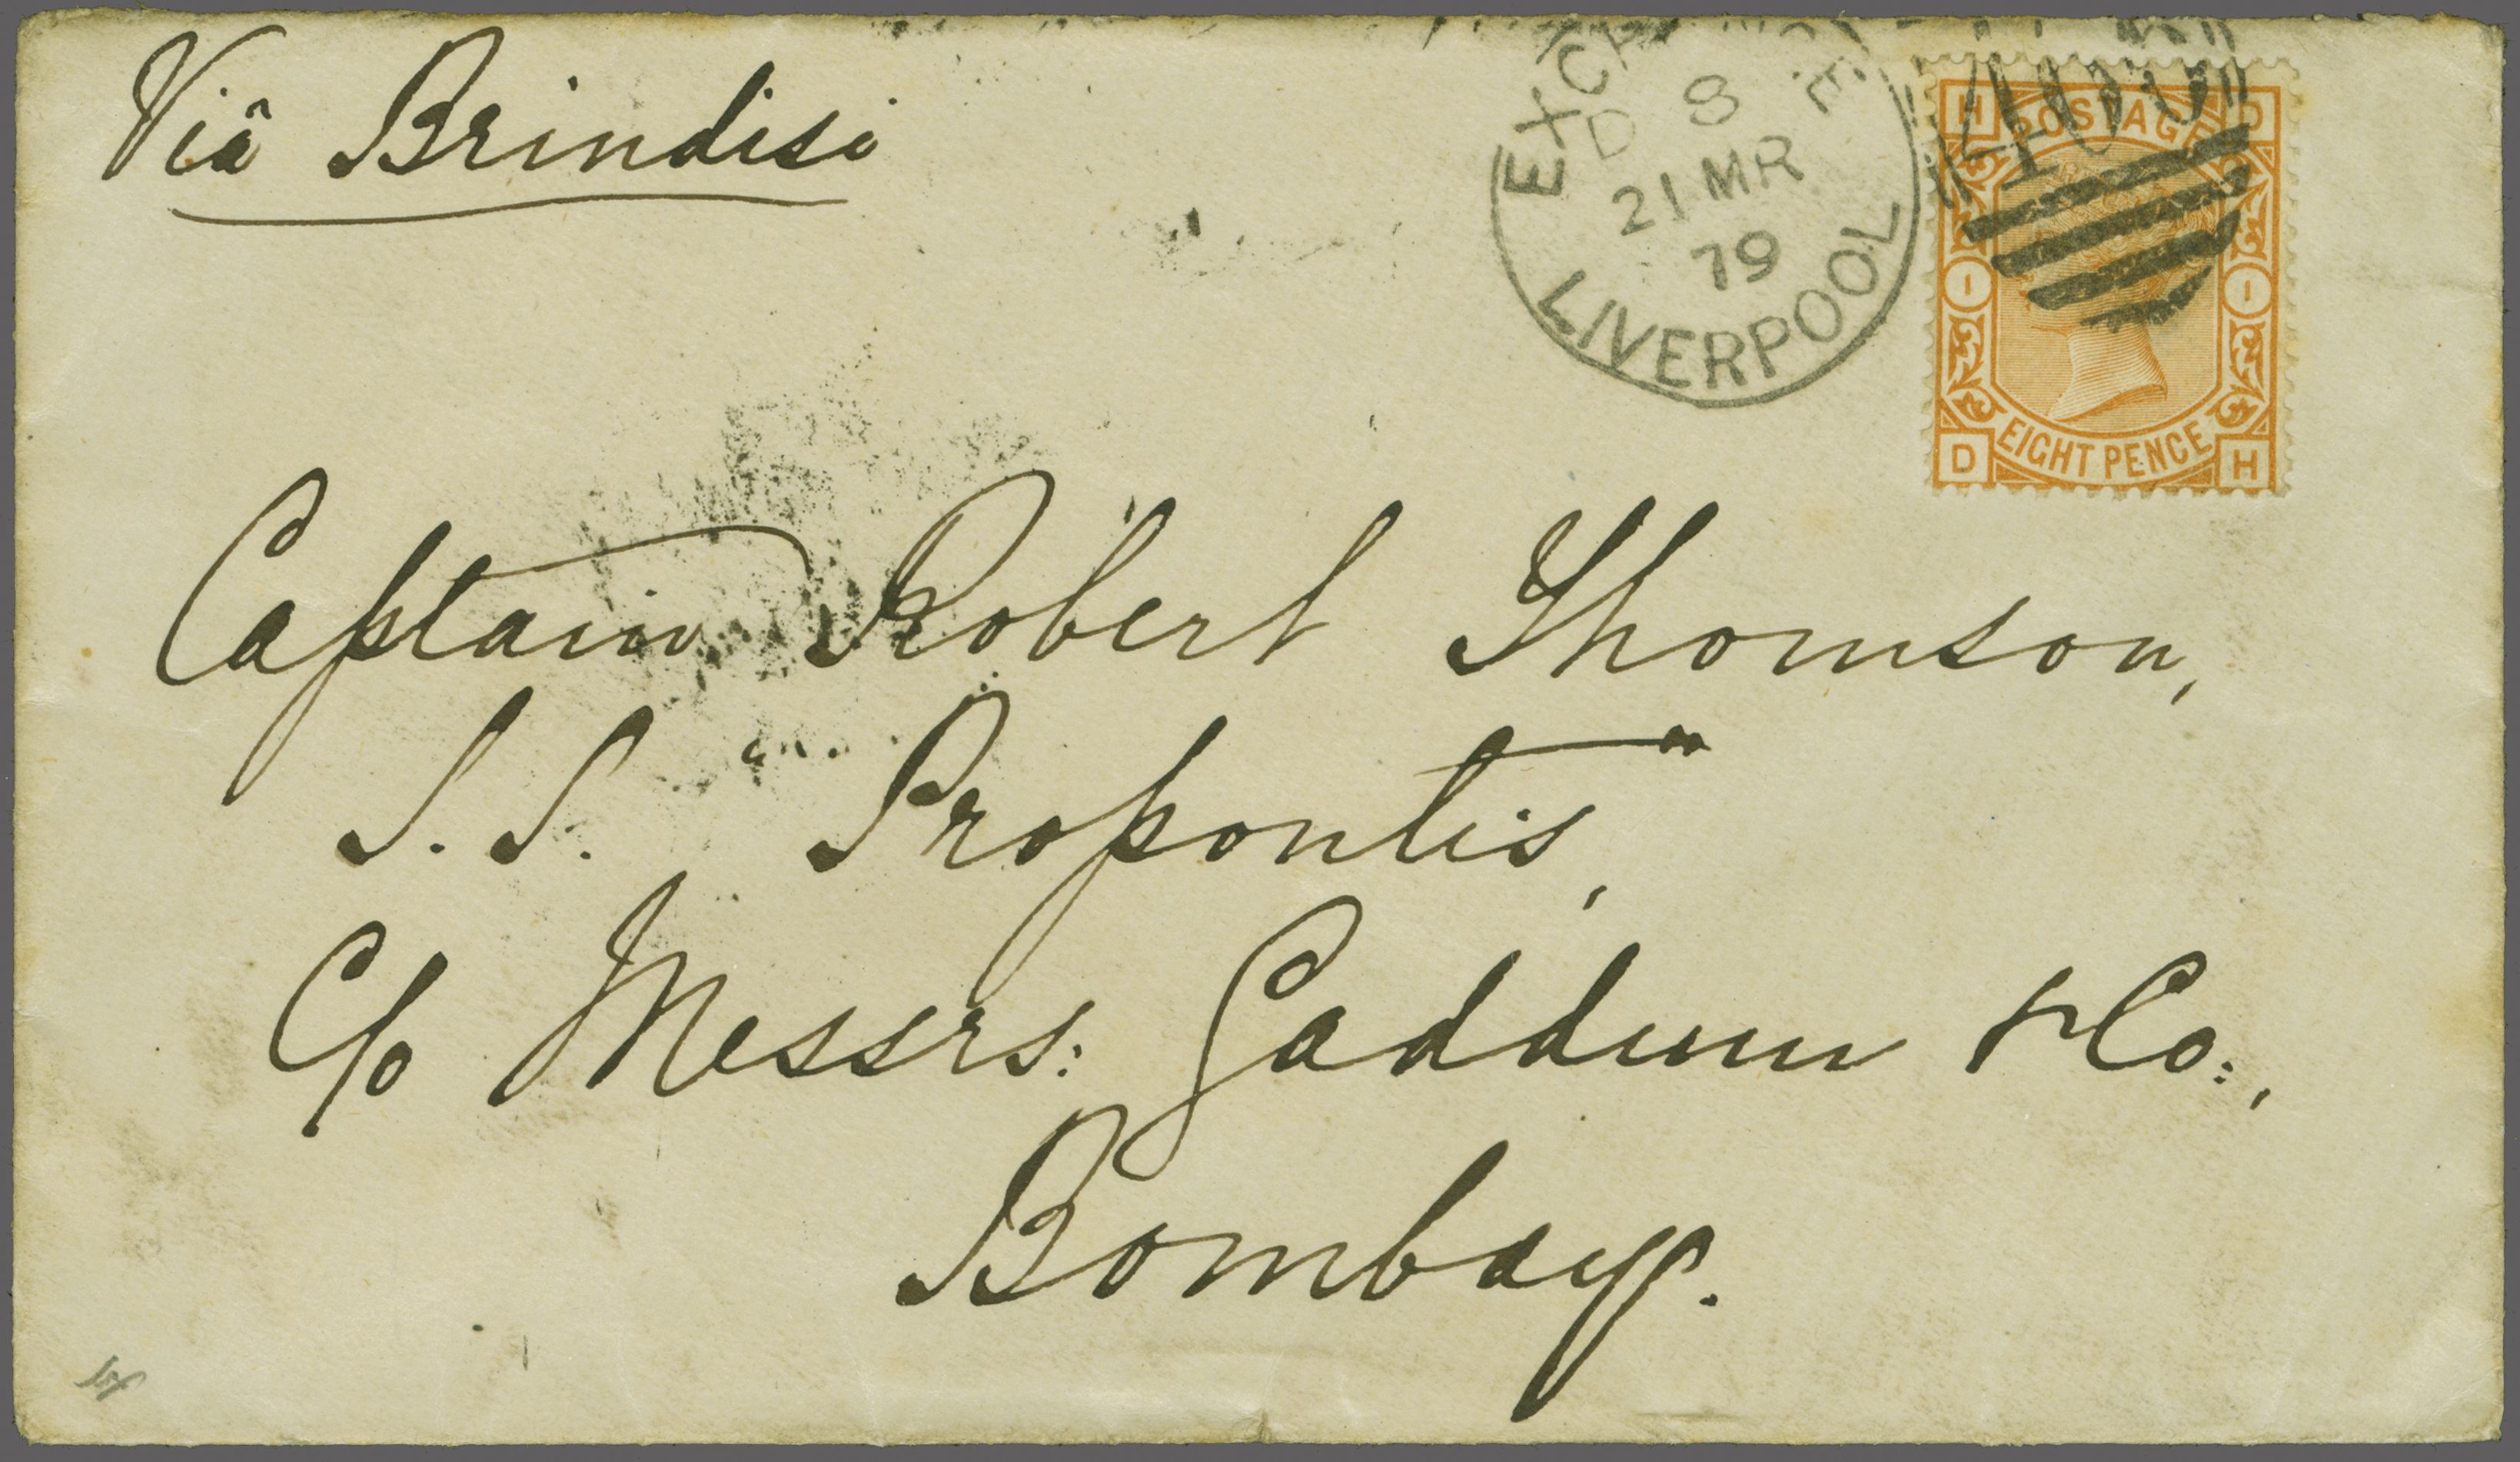 Viâ Brindisi
EXCH E.
D 8
21 MR
79
LIVERPOOL
H POSTAGE D
1 1
EIGHT PENCE
D H
Captain Robert Thomson,
S.S. Propontis,
C/o Messrs: Gaddum & Co:,
Bombay.